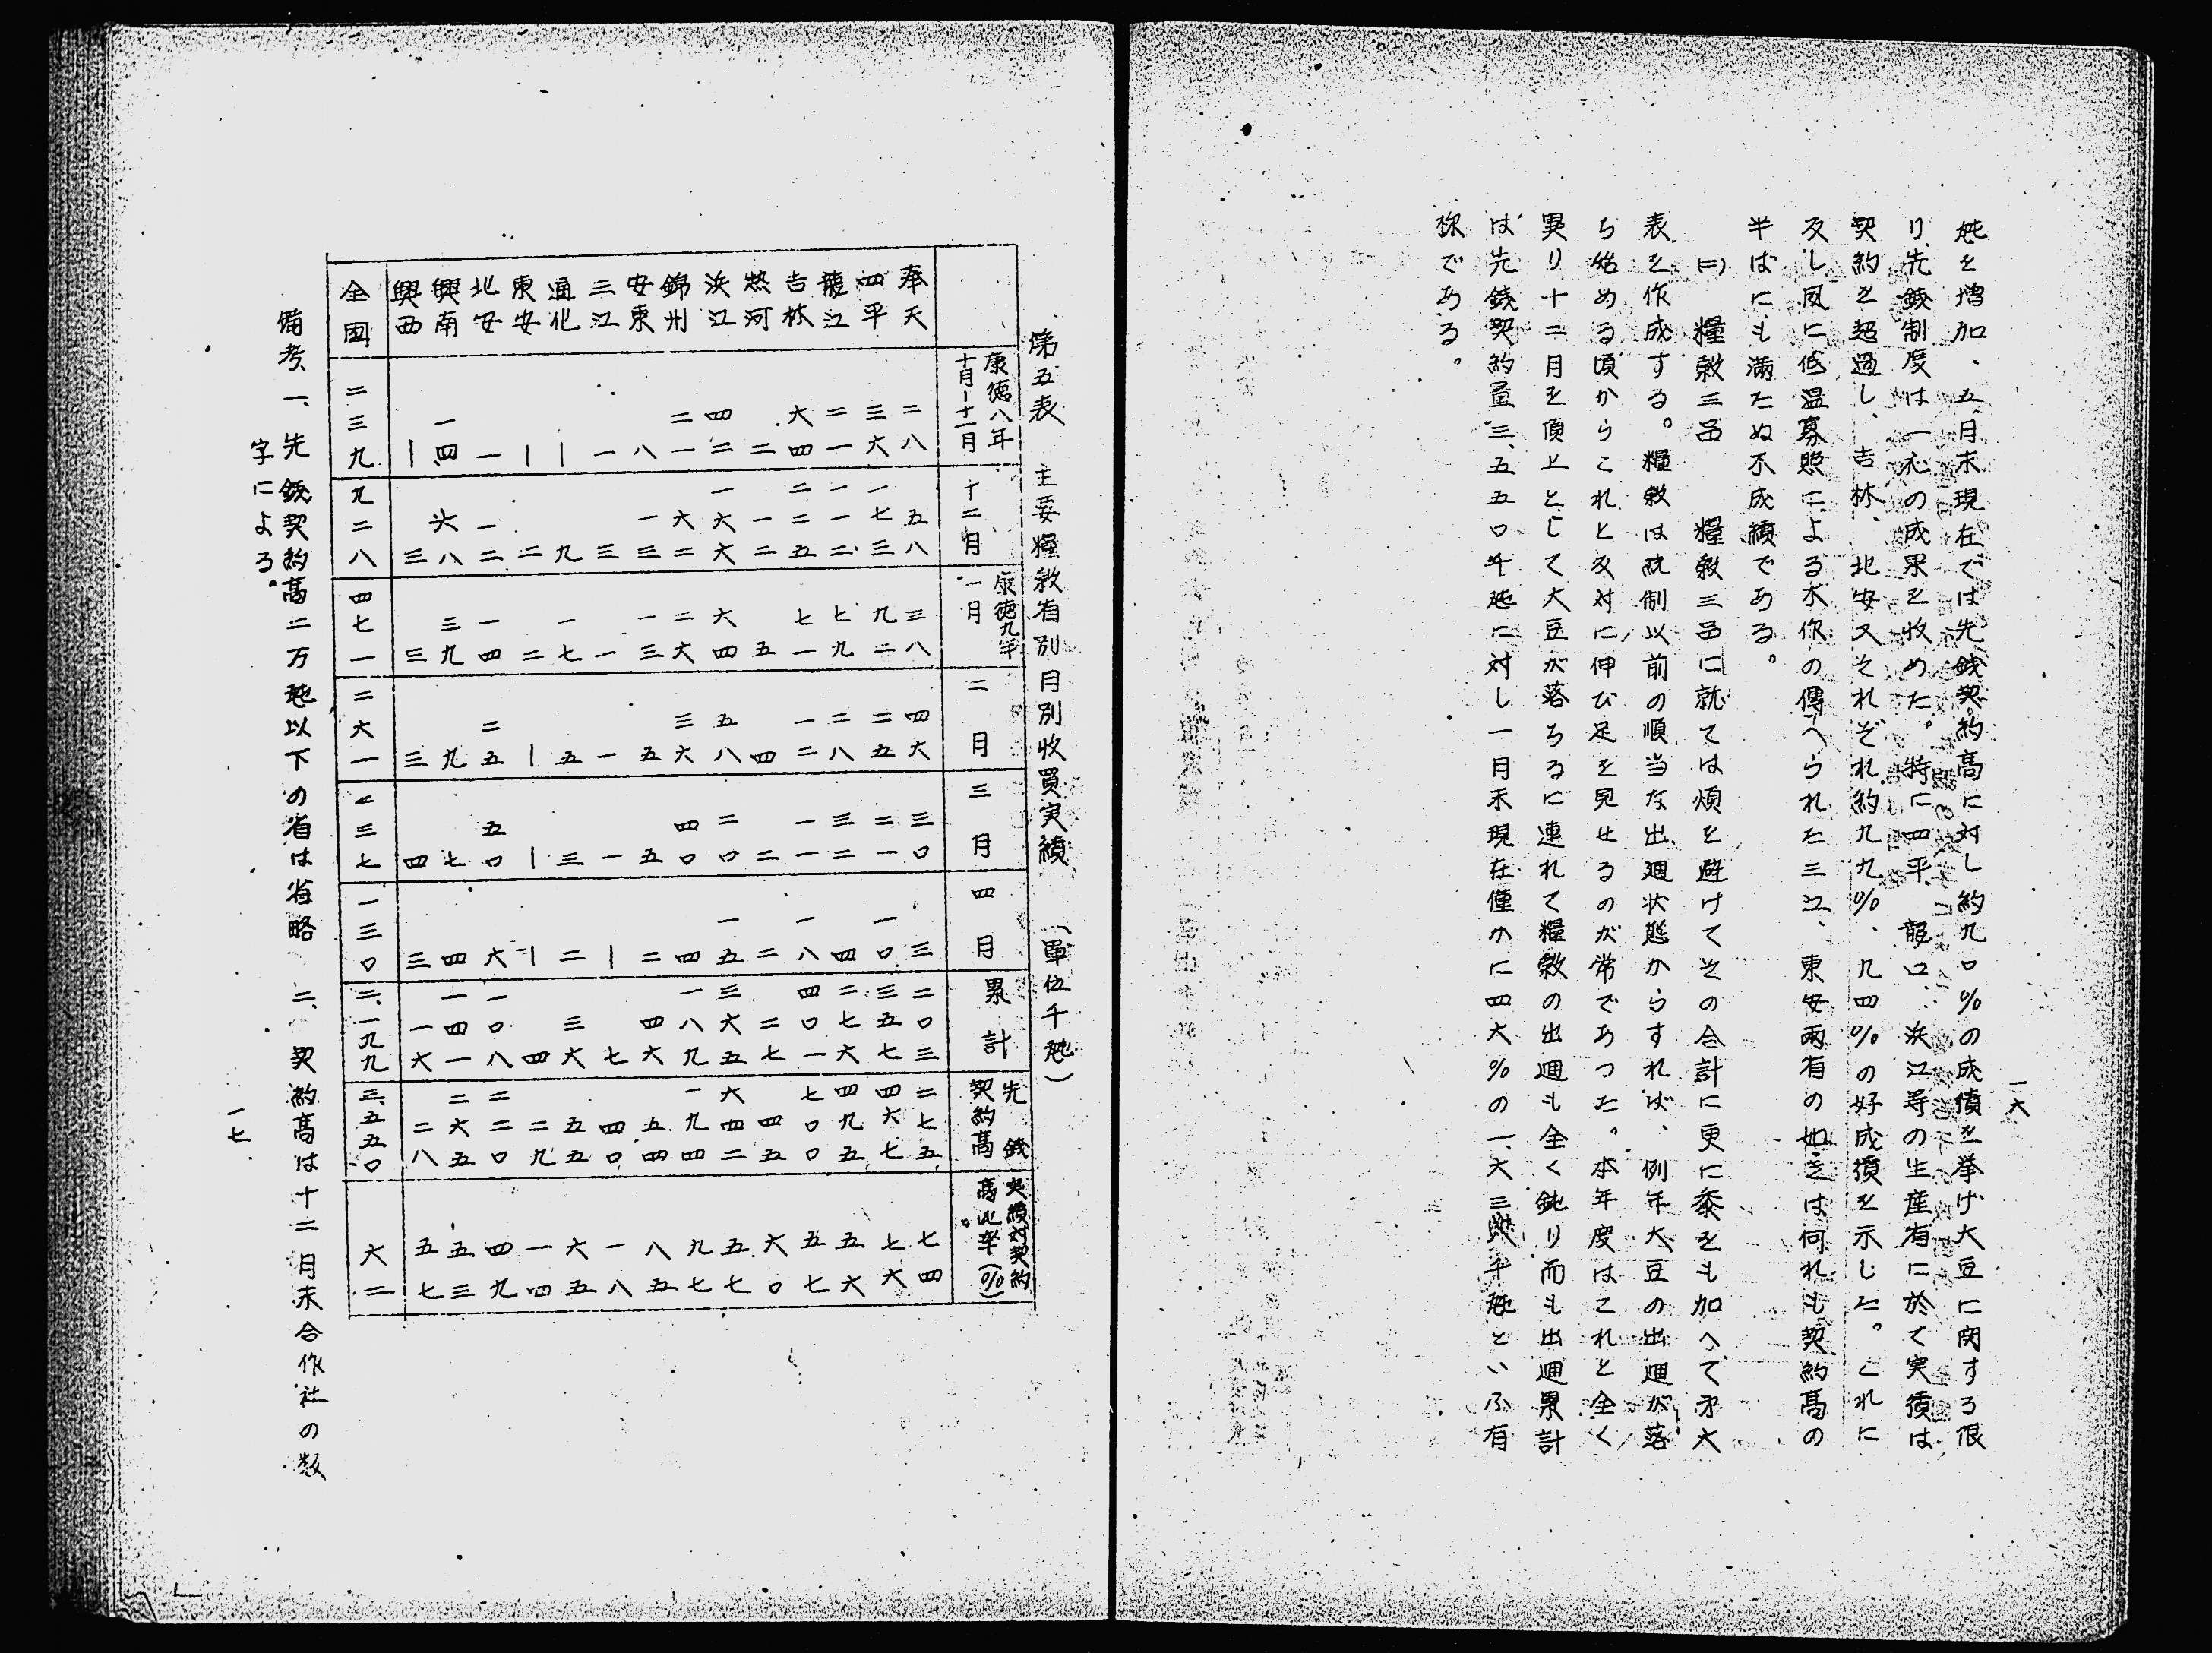 一六
瓲を増加、五月末現在では先銭契約高に対し約九〇%の成績を挙げ大豆に関する限
り先銭制度は一応の成果を收めた。特に四平、龍江、浜江等の生産省に於て実績は
契約を超過し、吉林、北安又それぞれ約九九%、九四%の好成績を示した。これに
反し夙に低温寡照による水作の傳へられた三江、東安両省の如きは何れも契約高の
半ばにも満たぬ不成績である。
㈡ 糧穀三品 糧穀三品に就ては煩を避けてその合計に更に黍をも加へて次大
表を作成する。糧穀は統制以前の順当な出廻状態からすれば、例年大豆の出廻が落
ち始める頃からこれと反対に伸び足を見せるのが常であつた。本年度はこれと全く
異り十二月を頂上として大豆が落ちるに連れて糧穀の出廻も全く鈍り而も出廻累計
は先銭契約量三、五五〇千瓲に対し一月末現在僅かに四六%の一、六三　千瓲といふ有
様である。
第五表 主要糧穀省別月別收買実績 (單位千瓲)
康徳八年十月－十一月 十二月 康徳九年一月 二月 三月 四月 累計 先銭契約高 実績対契約高比率(%)
奉天 二八 五八 三八 四六 三〇 三 二〇三 二七五 七四
四平 三六 一七三 九二 二五 二一 一〇 三五七 四六七 七六
龍江 二一 一一二 七九 二八 三二 四 二七六 四九五 五六
吉林 六四 二二五 七一 一二 一一 一八 四〇一 七〇〇 五七
熱河 二 一二 五 四 二 二 二七 四五 六〇
浜江 四二 一六六 六四 五八 二〇 一五 三六五 六四二 五七
錦州 二一 六二 二六 三六 四〇 四 一八九 一九四 九七
安東 八 一三 一三 五 五 二 四六 五四 八五
三江 一 三 一 一 一 － 七 四〇 一八
通化 － 九 一七 五 三 二 三六 五五 六五
東安 － 二 二 － － － 四 二九 一四
北安 一 一二 一四 二五 五〇 六 一〇八 二二〇 四九
興南 一四 六八 三九 九 七 四 一四一 二六五 五三
興西 － 三 三 三 四 三 一六 二八 五七
全國 二三九 九二八 四七一 二六一 二三七 一三〇 二、一九九 三、五五〇 六二
備考、一、先銭契約高二万瓲以下の省は省略 二、契約高は十二月末合作社の数
字による。
一七